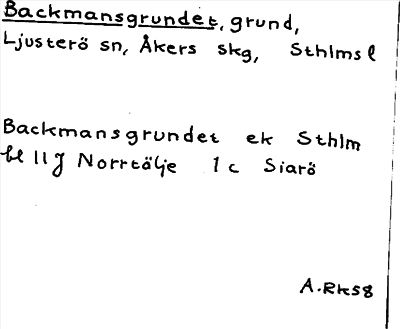 Backmansgrundet, grund,
Ljusterö sn, Åkers skg, Sthlms l
Backmansgrundet ek Sthlm
bl 11 J Norrtälje 1 c Siarö
A.Rk58